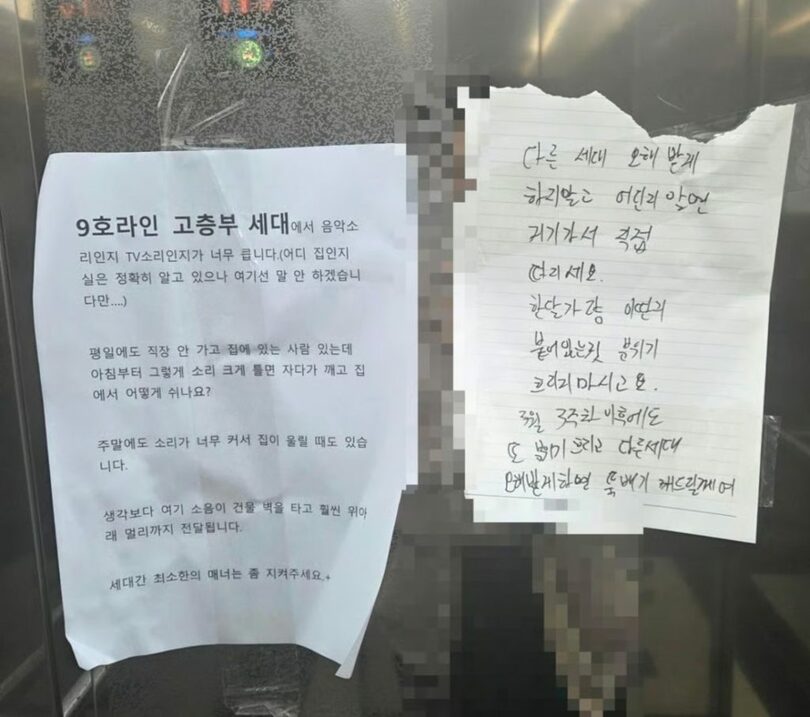 9호라인 고층부 세대에서 음악소
리인지 TV소리인지가 너무 큽니다.(어디 집인지
실은 정확히 알고 있으나 여기선 말 안 하겠습니
다만....)
평일에도 직장 안 가고 집에 있는 사람 있는데
아침부터 그렇게 소리 크게 틀면 자다가 깨고 집
에서 어떻게 쉬나요?
주말에도 소리가 너무 커서 집이 울릴 때도 있습
니다.
생각보다 여기 소음이 건물 벽을 타고 훨씬 위아
래 멀리까지 전달됩니다.
세대간 최소한의 매너는 좀 지켜주세요.+
다른 세대 오해 받게
하지말고 어딘지 알면
거기가서 직접
따지세요.
한달가량 이딴거
붙어있는것 분위기
흐리지 마시고요.
3주차 이후에도
또 분위기 흐리고 다른세대
오해받게하면 뚝배기 깨드릴게여